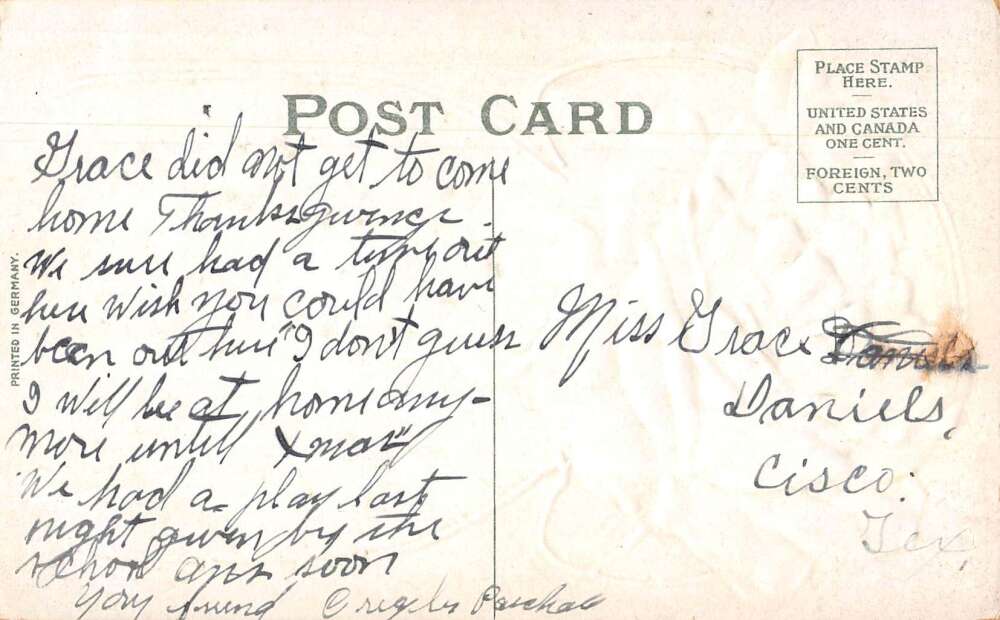 POST CARD
PLACE STAMP
HERE.
UNITED STATES
AND CANADA
ONE CENT.
FOREIGN, TWO
CENTS
PRINTED IN GERMANY.
Grace did not get to come
home Thanksgiving
We sure had a out
here Wish you could have
been out here I don't guess
I will be at home any-
more until Xmas
We had a play last
night given by the
school ans soon
Your friend
Miss Grace
Daniels,
Cisco.
Tex,